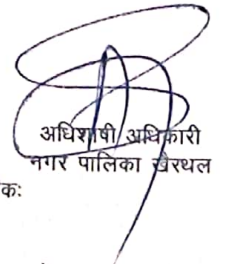 अधिशाषी अधिकारी
नगर पालिका खैरथल
कः